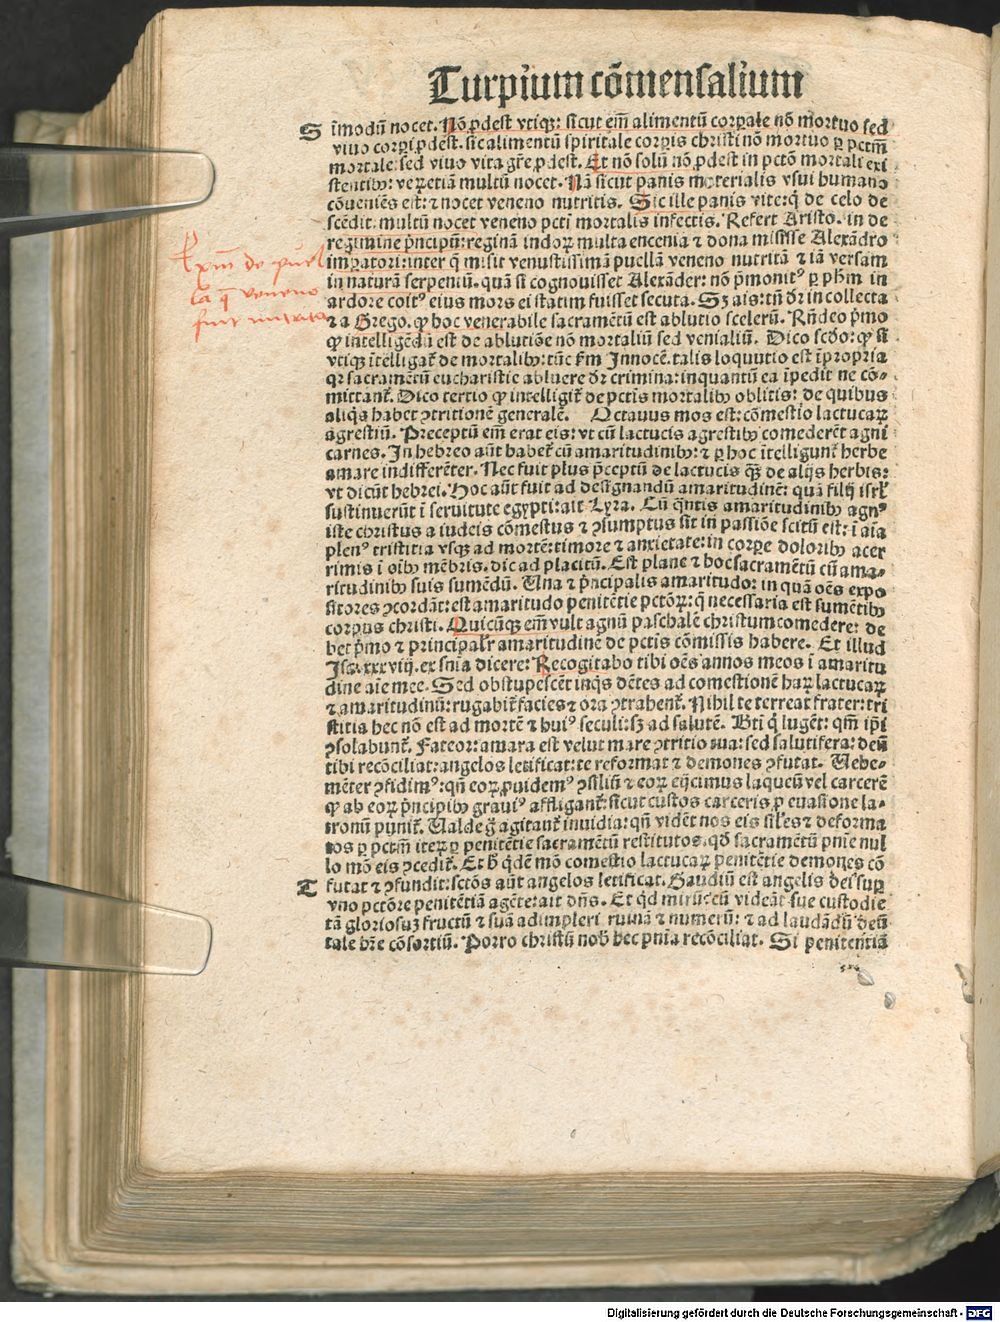 Turpium cōmensalium
S
īmodū nocet. Nō ꝓdest vtiqꝫ: sicut em̄ alimentū corꝑale nō mortuo sed
viuo corꝑi ꝓdest. sic alimentū spiritale corꝑis christi nō mortuo ꝑ pctm̄
mortale: sed viuo vita gr̄e ꝓdest. Et nō solū nō ꝓdest in pctō mortali exi
stentibꝰ: veꝝetiā multū nocet. Nā sicut panis materialis vsui humano
cōueniēs est: ⁊ nocet veneno nutritis. Sic ille panis vite: q̄ de celo de
scēdit. multū nocet veneno pcti mortalis infectis. Refert Aristo. in de
regimine pncipū: reginā indoꝝ multa encenia ⁊ dona misisse Alexādro
imꝑatori: inter q̄ misit venustissimā puellā veneno nutritā ⁊ iā versam
in naturā serpentū. quā si cognouisset Alexāder: nō p̄monitꝰ ꝑ ph̄m in
ardore coitꝰ eius mors ei statim fuisset secuta. Sꝫ ais: tn̄ dr̄ in collecta
⁊ a Grego. ꝙ hoc venerabile sacramētū est ablutio scelerū. Rn̄deo p̄mo
ꝙ intelligēdū est de ablutiōe nō mortaliū sed venialiū. Dico scdo: ꝙ si
vtiqꝫ ītelligat̄ de mortalibꝰ: tūc fm̄ Innocē. talis loquutio est īpropria
qꝛ sacramētū eucharistie abluere dr̄ crimina: inquantū ea īpedit ne cō-
mittant̄. Dico tertio ꝙ intelligit̄ de pctis mortalibꝰ oblitis: de quibus
aliq̄s habet ꝯtritionē generalē. Octauus mos est: cōmestio lactucaꝝ
agrestiū. Preceptū em̄ erat eis: vt cū lactucis agrestibꝰ comederēt agni
carnes. In hebreo aūt habet̄ cū amaritudinibꝰ: ⁊ ꝑ hoc ītelligunt̄ herbe
amare indifferēter. Nec fuit plus p̄ceptū de lactucis qꝫ de alijs herbis:
vt dicūt hebrei. Hoc aūt fuit ad designandū amaritudinē: quā filij isrl̄
sustinuerūt ī seruitute egypti: ait Lyra. Cū q̄ntis amaritudinibꝰ agnꝰ
iste christus a iudeis cōmestus ⁊ ꝯsumptus sit in passiōe scitū est: ī aīa
plenꝰ tristitia vsqꝫ ad mortē: timore ⁊ anxietate: in corꝑe doloribꝰ acer
rimis ī oībꝰ mēbris. dic ad placitū. Est plane ⁊ hoc sacramētū cū ama-
ritudinibꝰ suis sumēdū. Una ⁊ p̄ncipalis amaritudo: in quā oēs expo
sitores ꝯcordāt: est amaritudo penitētie pctōꝝ: q̄ necessaria est sumētibꝰ
corpus christi. Quicūqꝫ em̄ vult agnū paschalē christum comedere: de
bet p̄mo ⁊ principalr̄ amaritudinē de pctis cōmissis habere. Et illud
Isa. xxxviij. ex snīa dicere: Recogitabo tibi oēs annos meos ī amaritu
dine aīe mee. Sed obstupescēt inqs dētes ad comestionē haꝝ lactucaꝝ
⁊ amaritudinū: rugabit̄ facies ⁊ ora ꝯtrahent̄. Nihil te terreat frater: tri
stitia hec nō est ad mortē ⁊ huiꝰ seculi: sꝫ ad salutē. Bti q̄ lugēt: qm̄ ip̄i
ꝯsolabunt̄. Fateor: amara est velut mare ꝯtritio tua: sed salutifera: deū
tibi recōciliat: angelos letificat: te reformat ⁊ demones ꝯfutat. Vehe-
mēter ꝯfidimꝰ: qn̄ eoꝝ ꝓuidemꝰ ꝯsiliū ⁊ eoꝝ eijcimus laqueū vel carcerē
ꝙ ab eoꝝ p̄ncipibꝰ grauiꝰ affligant̄: sicut custos carceris ꝓ euasione la-
tronū punit̄. Ualde g̊ agitant̄ inuidia: qn̄ vidēt nos eis sil̄es ⁊ deforma
tos ꝑ pctm̄ iteꝝ ꝑ penitētie sacramētū restitutos. qd̄ sacramētū pnīe nul
lo mō eis ꝯcedit̄. Et h̄ q̄dē mō comestio lactucaꝝ penitētie demones cō
T
futat ⁊ ꝯfundit: sctōs aūt angelos letificat. Gaudiū est angelis dei suꝑ
vno pctōre penitētiā agēte: ait dn̄s. Et qd mirū: cū videāt sue custodie
tā gloriosuꝫ fructū ⁊ suā adimpleri ruinā ⁊ numerū: ⁊ ad laudādū deū
tale hr̄e cōsortiū. Porro christū nob̄ hec pnīa recōciliat. Si penitentiā
Expm̄ de puel
la q̄ veneno
fuit nutrita
Digitalisierung gefördert durch die Deutsche Forschungsgemeinschaft - DFG